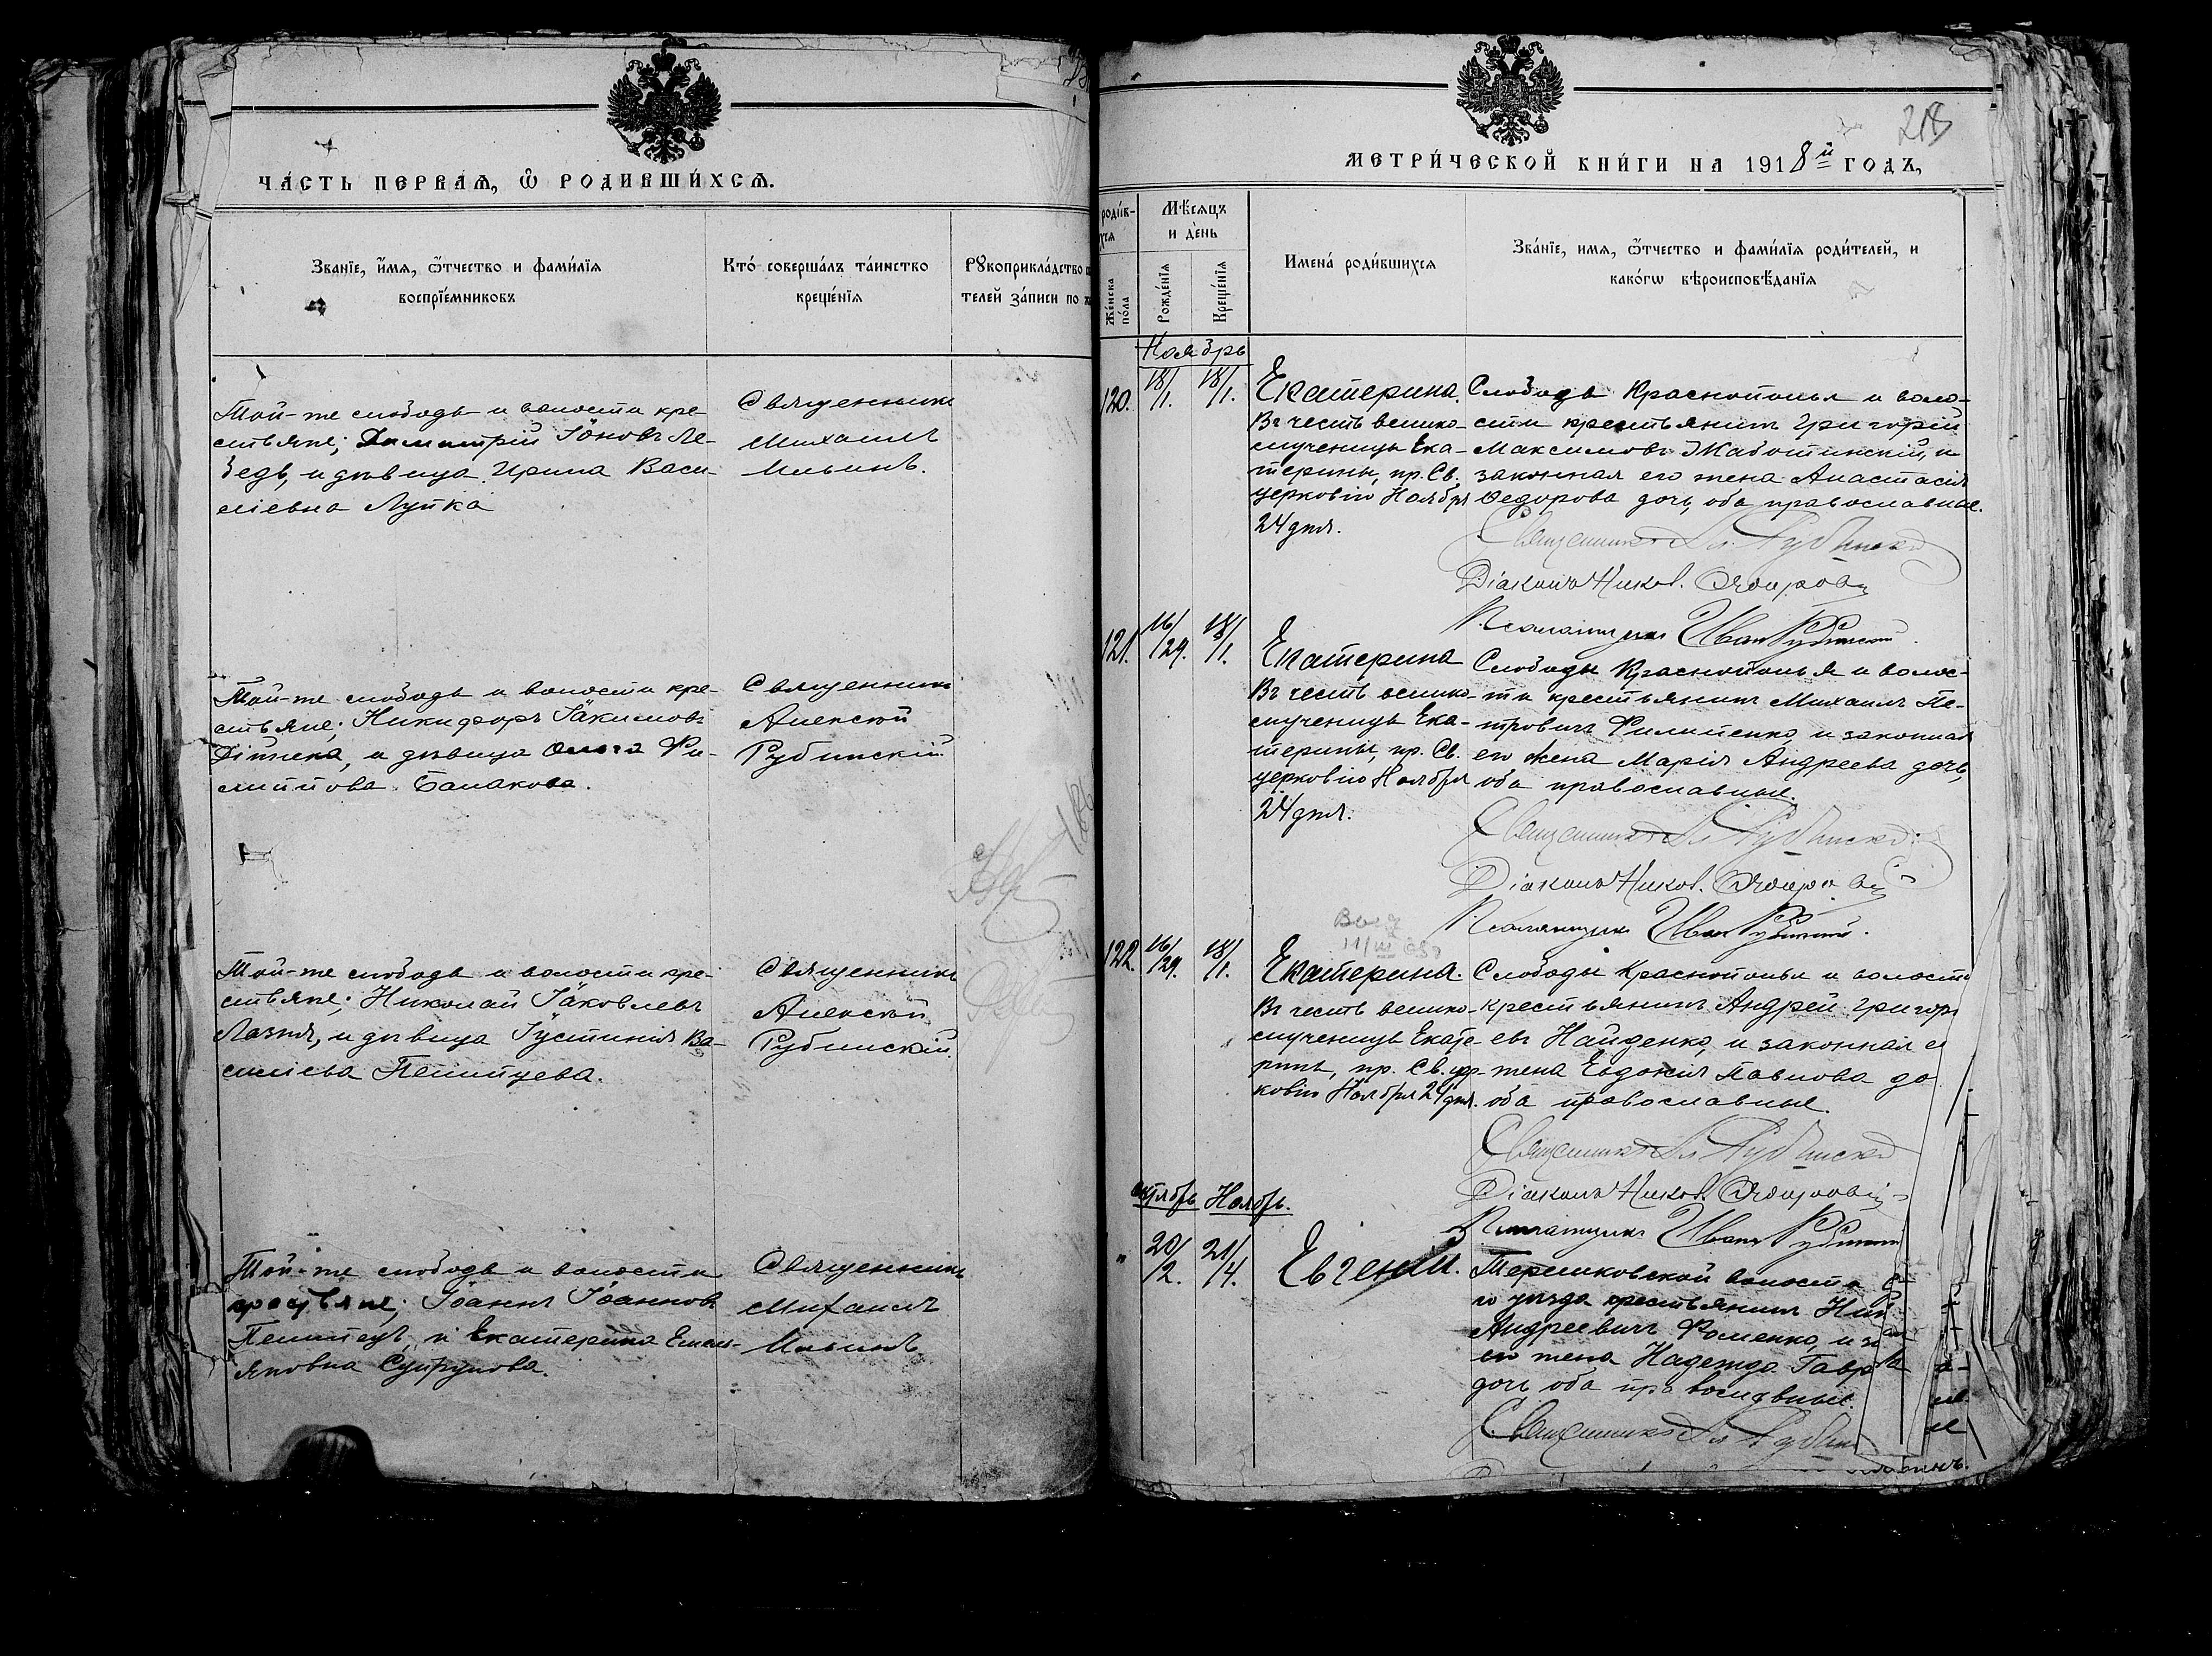 ЧА́СТЬ ПЕ́РВАѦ, Ѡ҆ РОДИВШИ́ХСѦ.
Зва́нїе, и҆́мѧ, ѻ҆́тчество и фами́лїѧ
воспрїе́мниковъ
Кто̀ соверша́лъ та́инство
креще́нїѧ
Рꙋкоприкла́дство
телей за́писи по
Той-же слободы и волости кре-
стьяне; Димитрій Іоновъ Ле-
бедь, и дѣвица Ирина Васи-
ліевна Лупка
Священникъ
Михаилъ
Ильинъ.
Той-же слободы и волости кре-
стьяне; Никифоръ Іакимовъ
и дѣвица Ольга Фи-
липпова Балакова.
Священникъ
Алексій
Рубинскій
Той-же слободы и волости кре-
стьяне; Николай Іаковлевъ
Лазня, и дѣвица Іустинія Ва-
силіева Пелипцева.
Священникъ
Алексій
Рубинскій.
Той-же слободы и волости
крестьяне; Іоаннъ Іоанновъ
Пелипецъ, и Екатерина Емель-
яновна Супрунова.
Священникъ
Михаилъ
Ильинъ
МЕТРИ́ЧЕСКОЙ КНИ́ГИ НА 1918й ГОДЪ,
218
роди́в-
хсѧ
Же́нска
по́ла
Мѣ́сѧцъ
и де́нь
Рожде́нїѧ
Креще́нїѧ
Имена̀ роди́вшихсѧ
Зва́нїе, имѧ, ѻ҆́тчество и фами́лїѧ роди́телей, и
како́гѡ вѣроисповѣ́данїѧ
Ноябрь
120.
18/1.
18/1.
Екатерина.
Въ честь велико-
мученицы Ека-
терины, пр. Св.
церковію Ноября
24 дня.
Слободы Краснополья и воло-
сти крестьянинъ Григорій
Максимовъ Жаботинскій, и
законная его жена Анастасія
Ѳедорова дочь, оба православные.
Священникъ Ал. Рубинскій
Діаконъ Никол.
Псаломщикъ Иванъ Рубинскій.
121.
16/29.
18/1.
Екатерина
Въ честь велико-
мученицы Ека-
терины, пр. Св.
церковію Ноября
24 дня.
Слободы Краснополья и волос-
ти крестьянинъ Михаилъ Пе-
тровичъ Филипенко и законная
его жена Марія Андреева дочь,
оба православные.
Священникъ Ал. Рубинскій
Діаконъ Никол.
Псаломщикъ Иванъ Рубинскій.
122.
16/29.
18/1.
Екатерина.
Въ честь велико-
мученицы Екате-
рины, пр. Св. цер-
ковію Ноября 24 дня.
Слободы Краснополья и волости
крестьянинъ Андрей Григорі
евъ Найденко, и законная е
жена Евдокія Павлова до
оба православные.
Священникъ Ал. Рубинскій
Діаконъ Никол.
Псаломщикъ Иванъ Рубинскій
октябрь Ноябрь.
"
20/2.
21/4.
Евгеній.
Терешковской волости
го уѣзда крестьянинъ
Андреевичъ Фоменко, и за
его жена Надежда Гавр
дочь оба православные.
Священникъ Ал. Рубин